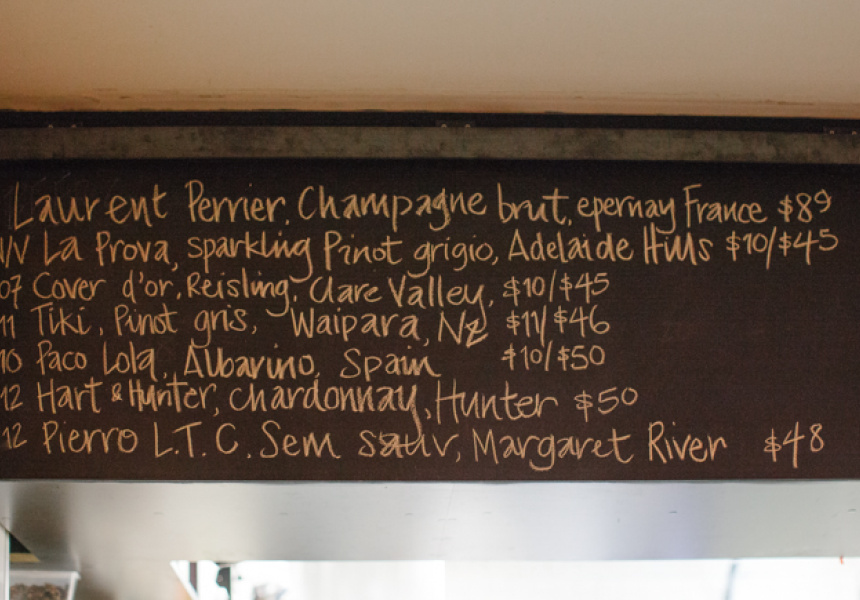 Laurent Perrier, Champagne brut, epernay France $89
NV La Prova, sparkling Pinot grigio, Adelaide Hills $10/$45
07 Cover d'or, Reisling, Clare Valley, $10/$45
11 Tiki, Pinot gris, Waipara, NZ $11/$46
10 Paco Lola, Albarino, Spain $10/$50
12 Hart & Hunter, chardonnay, Hunter $50
12 Pierro L.T.C. Sem sauv, Margaret River $48